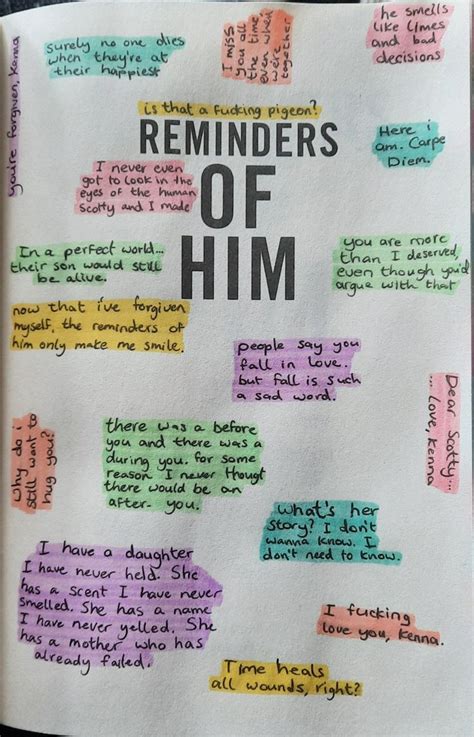 you're forgiven, Kenna
surely no one dies
when they're at
their happiest
I miss
you all
the time,
even when
we're
together
he smells
like limes
and bad
decisions
is that a fucking pigeon?
REMINDERS
OF
HIM
Here i
am. Carpe
Diem.
I never even
got to look in the
eyes of the human
Scotty and I made
In a perfect world...
their son would still
be alive.
you are more
than I deserved,
even though you'd
argue with that
now that i've forgiven
myself, the reminders of
him only make me smile.
people say you
fall in love.
but fall is such
a sad word.
Dear Scotty
... Love, Kenna
why do i
still want to
hug you?
there was a before
you and there was a
during you. for some
reason I never thougt
there would be an
after-you.
what's her
story? I don't
wanna know. I
don't need to know.
I have a daughter
I have never held. She
has a scent I have never
smelled. She has a name
I have never yelled. She
has a mother who has
already failed.
I fucking
love you, Kenna.
Time heals
all wounds, right?